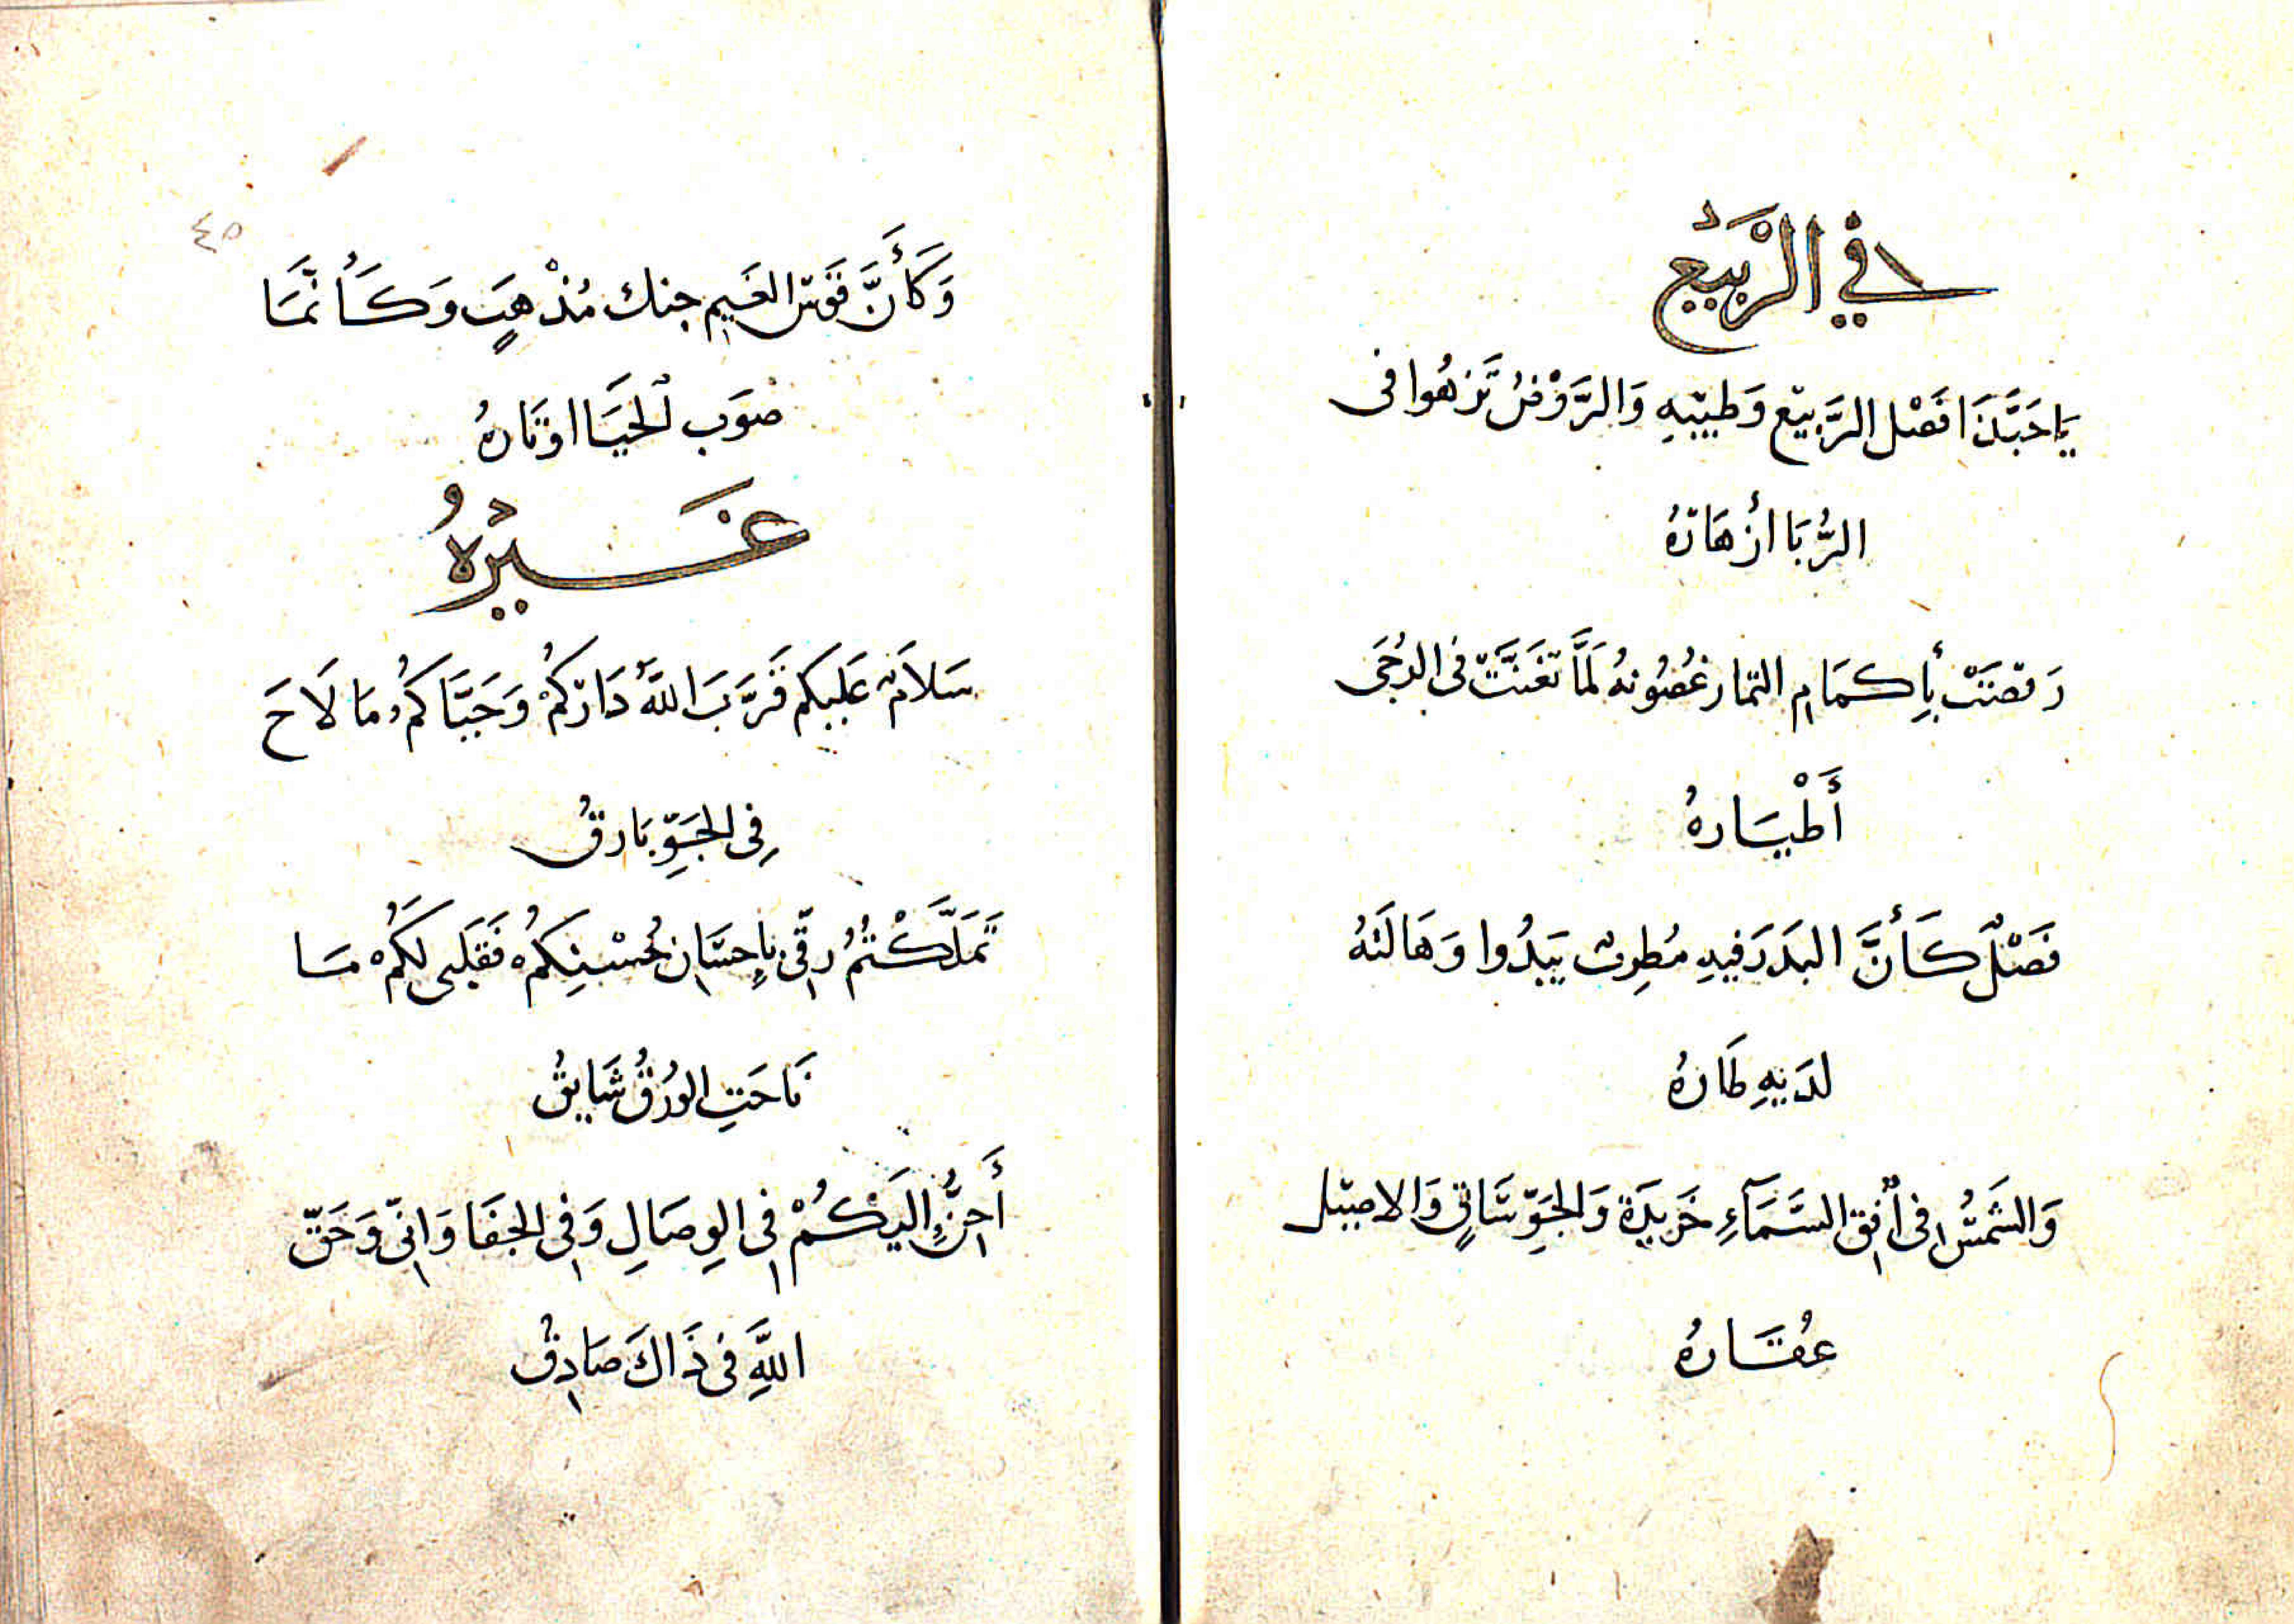 في الرَّبِيع
يَاحَبَّذَا فَصْل الرَّبِيع وَطِيبِهِ وَالرَّوْضُ تَزهُوا فى
الرُّبَا اَزهَارُهُ
رَقصَتْ بِأكمَامِ الثمار غُصُونهُ لَمَّا تغَنَّت فى الدُجَى
أَطْيَارهُ
فَصْلٌ كَأَنَّ البَدرَ فِيهِ مُطرِبٌ يَبدُوا وَهَالَتهُ
لدَيهِ طَارهُ
وَالشَمسُ فى اُفق السَّمَآءِ خَرِيدَة وَالجَوِّ سَاقٍ وَالاصِيل
عُقَارهُ
٤٥
وَكَأَنَّ قَوسَ الغَيم جنك مُذْهبٍ وَكَأنَّمَا
صَوب الحَيَا اوتَارهُ
غَيرُهُ
سَلاَمٌ عَلَيكم قَرَّبَ اللهُ دَارَكُمْ وَحَيَّاكمُ مَا لَاحَ
فِى الجَوِّ بَارقُ
تَمَلَّكْتمُ رِقّى بِاِحسَانِ حُسْنِكمُ فَقَلبى لكمُ مَا
نَاحَتِ الوُرْقُ شَايقُ
أَحِنُّ اِلَيكُمْ فِى الوِصَالِ وَفِى الجفَا وَاِنّى وَحَقّ
اللَّهِ فى ذَاكَ صَادِقُ